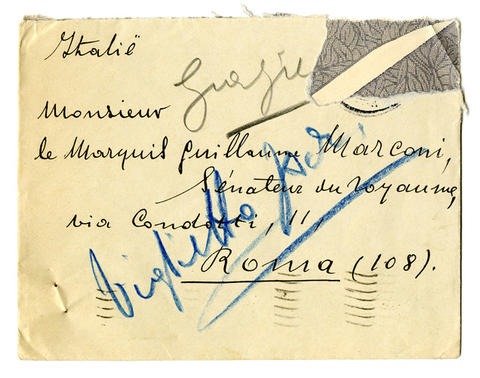 Italië
Grazie
Monsieur
le Marquis Guillaume Marconi,
Sénateur du royaume,
via Condotti, 11,
Roma (108).
biglietto